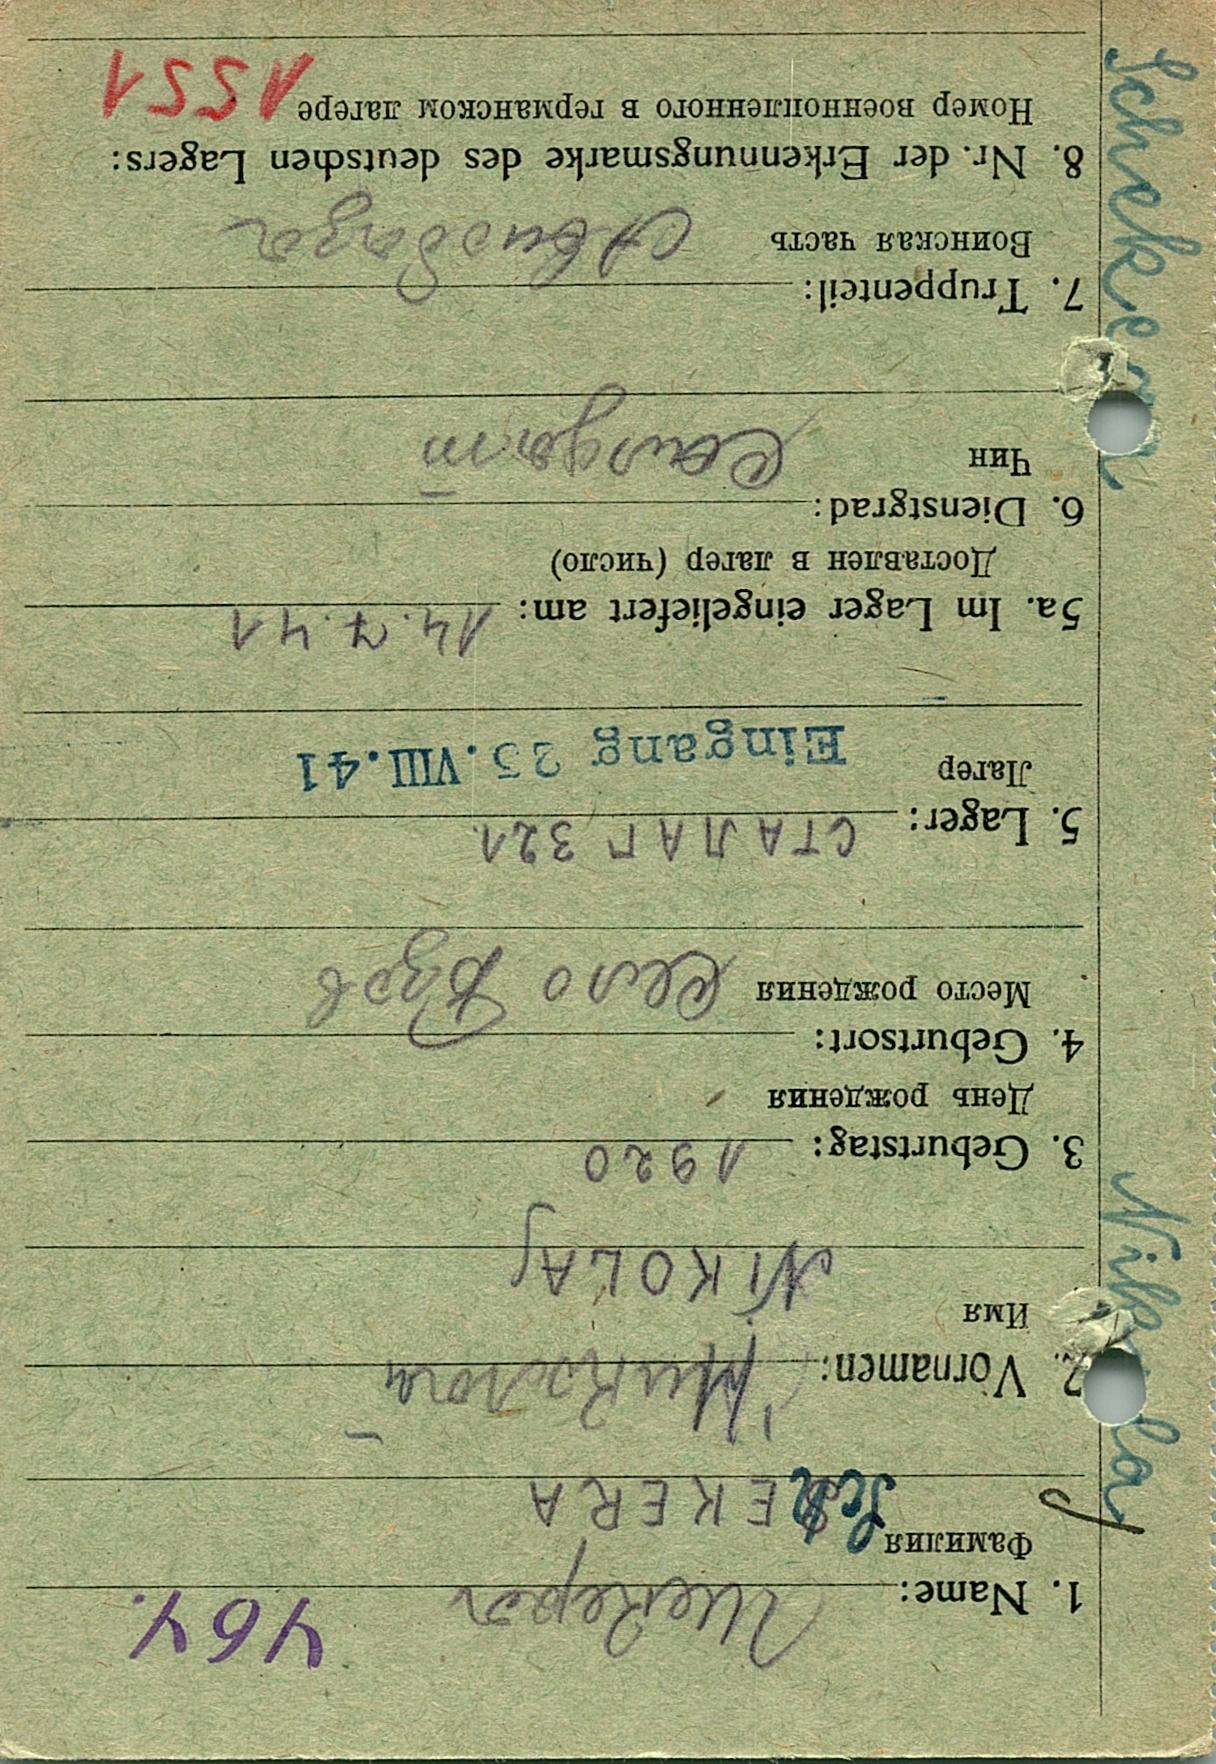 464.
1. Name: Шекера
Фамилия SchEKERA
2. Vornamen: Николай
Имя NIKOLAJ
3. Geburtstag: 1920
День рождения
4. Geburtsort:
Место рождения Село
5. Lager: СТАЛАГ 321.
Лагер Eingang 25.VIII.41
5a. Im Lager eingeliefert am: 14.7.41
Доставлен в лагер (число)
6. Dienstgrad:
Чин Солдат
7. Truppenteil:
Воинская часть Авиобаза
8. Nr. der Erkennungsmarke des deutschen Lagers:
Номер военнопленного в германском лагере 1551
Schekera Nikolaj